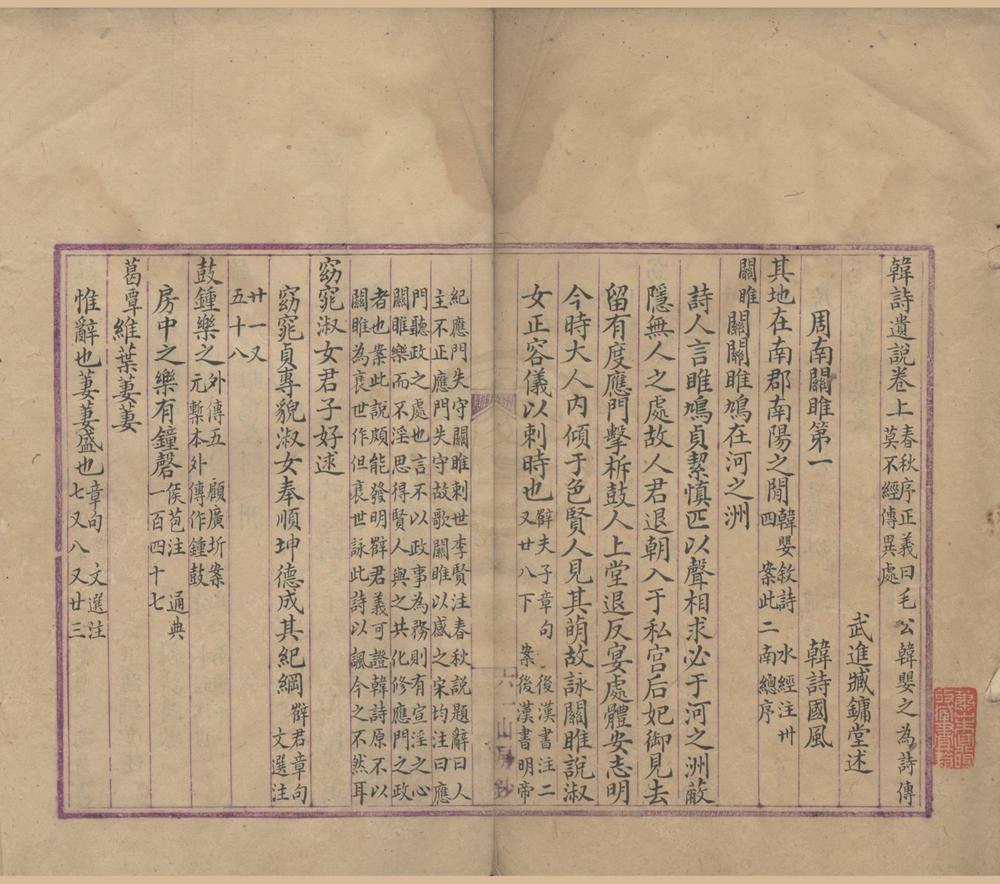 韓詩遺說卷上 春秋序正義曰毛公韓嬰之為詩傳莫不經傳異處
武進臧鏞堂述
周南關雎第一 韓詩國風
其地在南郡南陽之間 韓嬰敘詩 水經注卅四 案此二南總序
關雎 關關雎鳩在河之洲
詩人言雎鳩貞絜慎匹以聲相求必于河之洲蔽
隱無人之處故人君退朝入于私宮后妃御見去
留有度應門擊柝鼓人上堂退反宴處體安志明
今時大人內傾于色賢人見其萌故詠關雎說淑
女正容儀以刺時也 薛夫子章句 後漢書注二又廿八下 案後漢書明帝
紀應門失守關雎刺世李賢注春秋說題辭曰人
主不正應門失守故歌關雎以感之宋均注曰應
門聽政之處也言不以政事為務則有宣淫之心
關雎樂而不淫思得賢人與之共化修應門之政
者也案此說頗能發明薛君義可證韓詩原不以
關雎為衰世作但衰世詠此詩以諷今之不然耳
窈窕淑女君子好逑
窈窕貞專貌淑女奉順坤德成其紀綱 薛君章句 文選注
廿一又
五十八
鼓鍾樂之 外傳五 顧廣圻案元槧本外傳作鍾鼓
房中之樂有鐘磬 侯苞注 通典一百四十七
葛覃維葉萋萋
惟辭也萋萋盛也 章句 文選注七又八又廿三
六一山房鈔